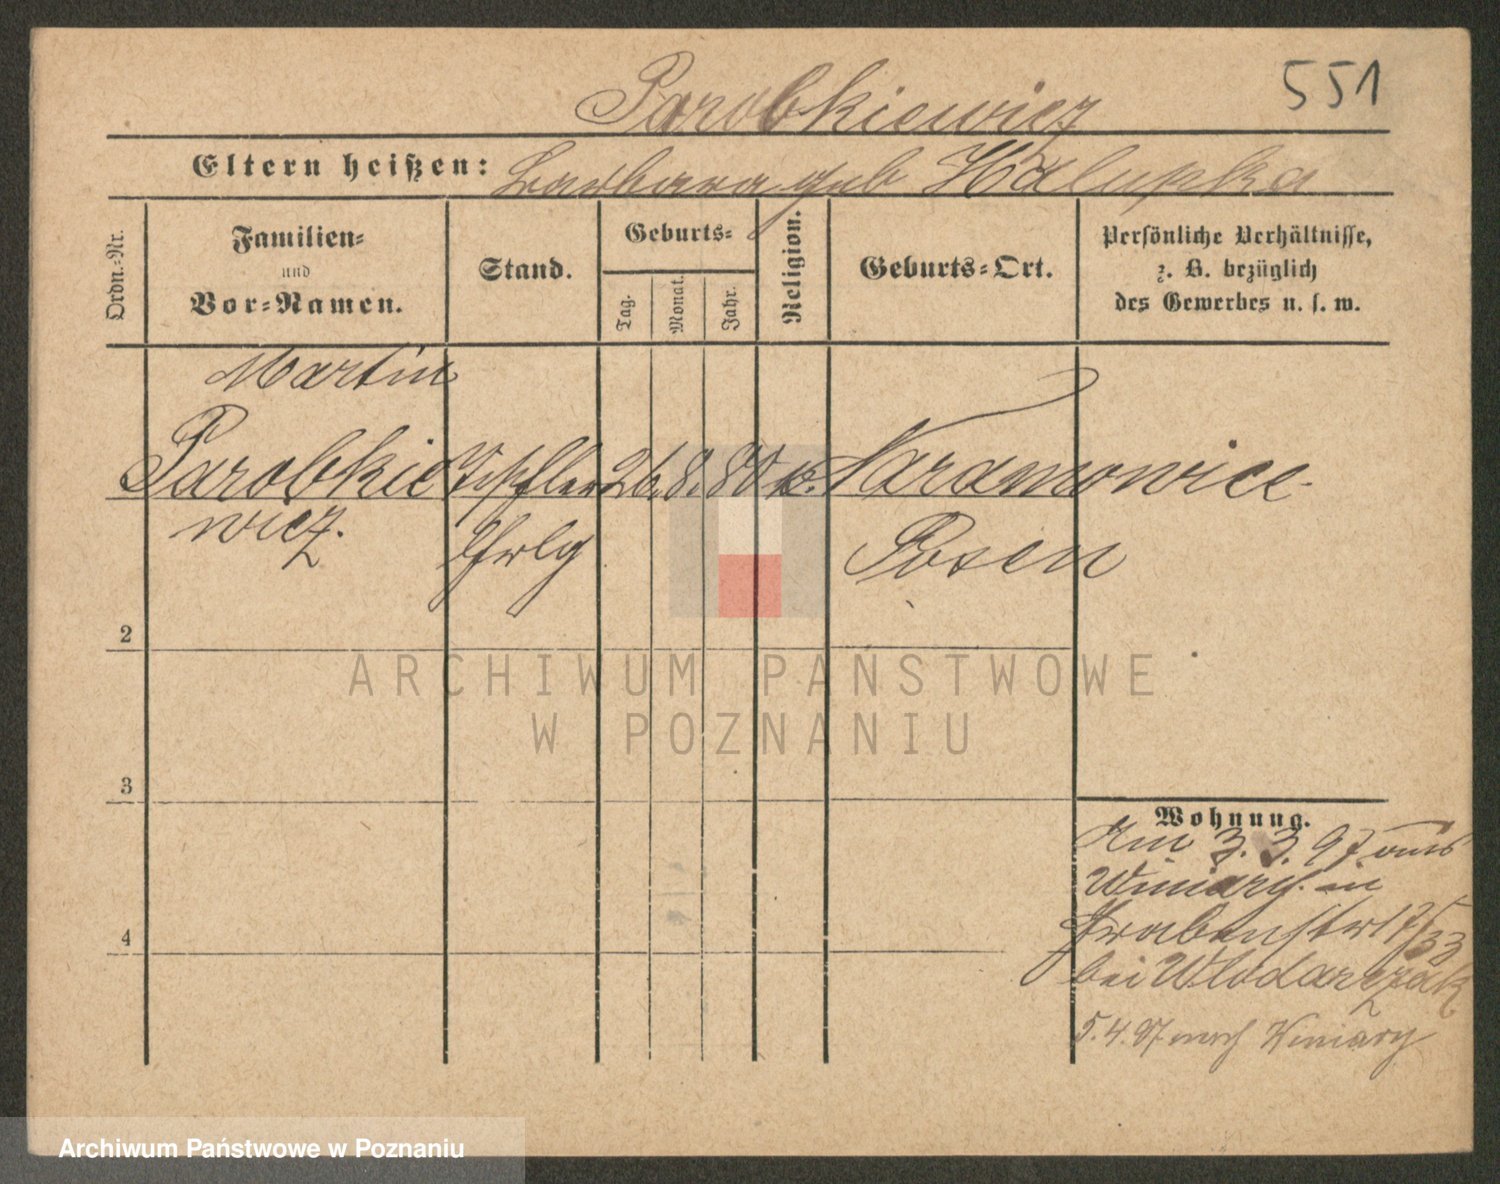 551
Parobkiewicz
Eltern heißen: Barbara geb Kalupka
Ordn.-Nr.
Familien-
und
Vor-Namen.
Stand.
Geburts-
Tag.
Monat.
Jahr.
Religion.
Geburts-Ort.
Persönliche Verhältnisse,
z. B. bezüglich
des Gewerbes u. s. w.
Martin
Parobkie Tischler 26. 8. 80 k. Naramowice
wicz. Posen
2
3
4
Wohnung.
Am 3. 3. 97 aus
Winiary in
Grabenstr 17/33
bei Wlodarczak
5. 4. 97 nach Winiary
ARCHIWUM PAŃSTWOWE
W POZNANIU
Archiwum Państwowe w Poznaniu